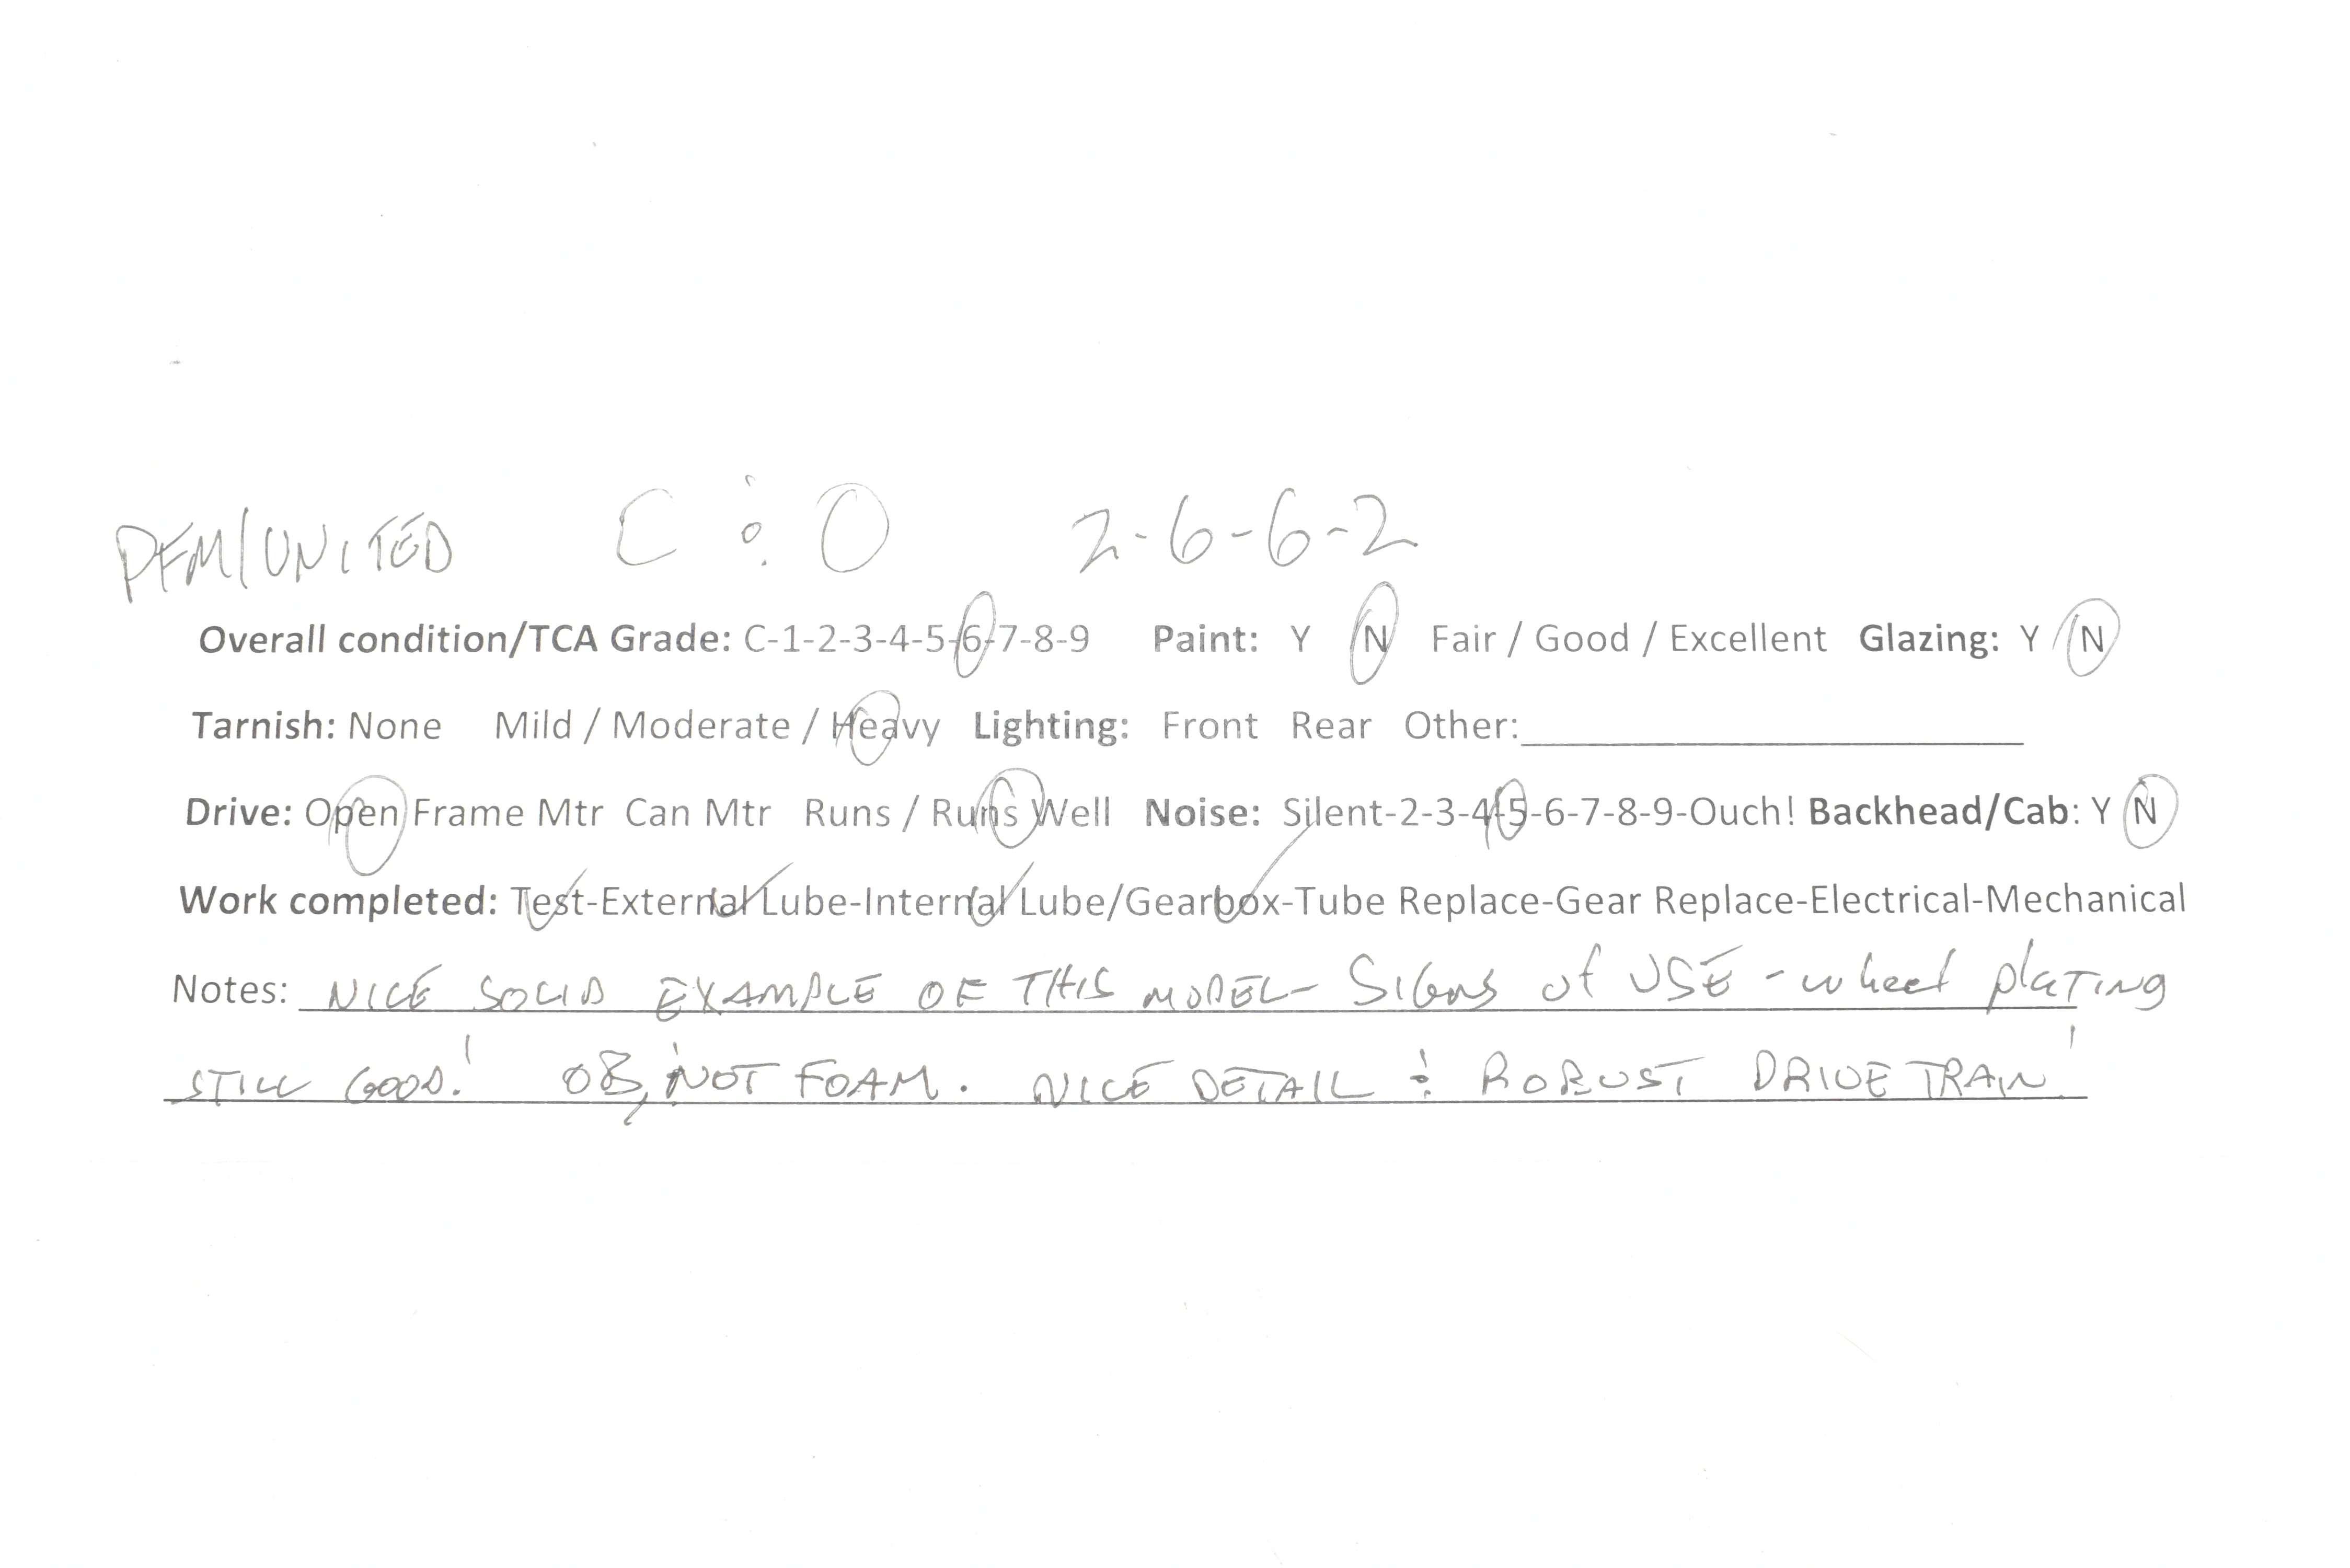 PFM/UNITED C & O 2-6-6-2
Overall condition/TCA Grade: C-1-2-3-4-5-6-7-8-9 Paint: Y N Fair / Good / Excellent Glazing: Y / N
Tarnish: None Mild / Moderate / Heavy Lighting: Front Rear Other:
Drive: Open Frame Mtr Can Mtr Runs / Runs Well Noise: Silent-2-3-4-5-6-7-8-9-Ouch! Backhead/Cab: Y N
Work completed: Test-External Lube-Internal Lube/Gearbox-Tube Replace-Gear Replace-Electrical-Mechanical
Notes: NICE SOLID EXAMPLE OF THIS MODEL- SIGNS of USE - wheel plating
STILL GOOD! OB, NOT FOAM. NICE DETAIL & ROBUST DRIVE TRAIN!